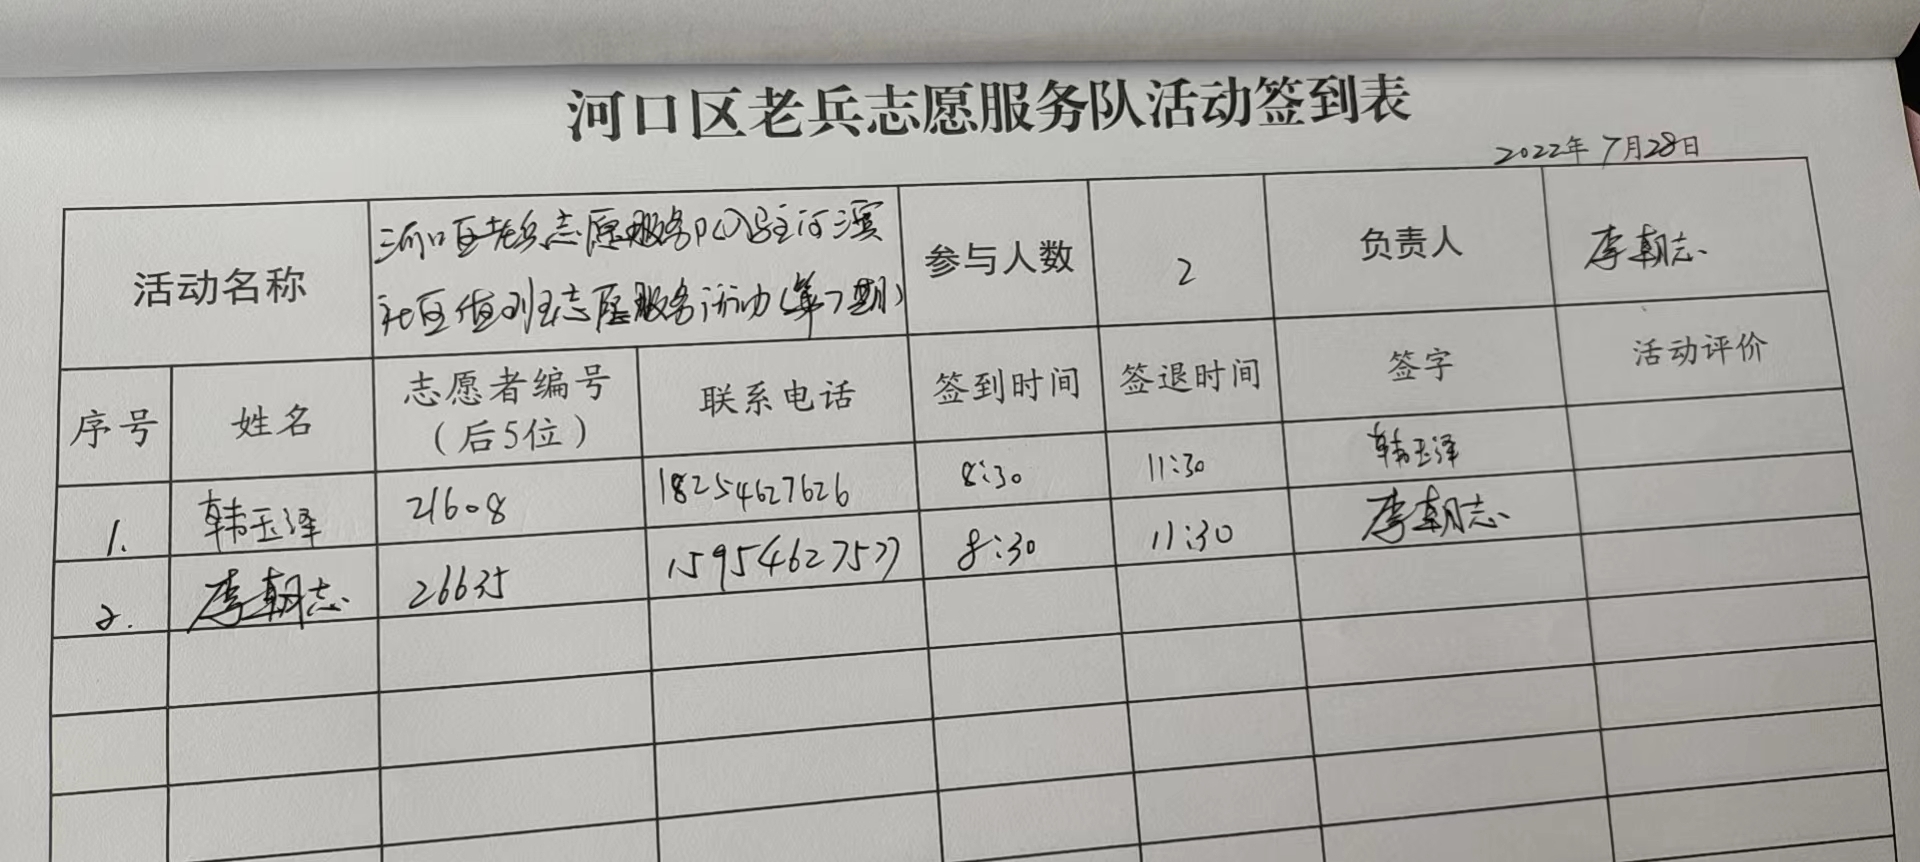 河口区老兵志愿服务队活动签到表
2022年7月28日
活动名称
河口区老兵志愿服务队驻河滨
社区值班志愿服务活动(第7期)
参与人数
2
负责人
李朝志
序号 姓名 志愿者编号
(后5位)
联系电话 签到时间 签退时间 签字 活动评价
1. 韩玉泽 21608 18254627626 8:30 11:30 韩玉泽
2. 李朝志 26635 15954627577 8:30 11:30 李朝志